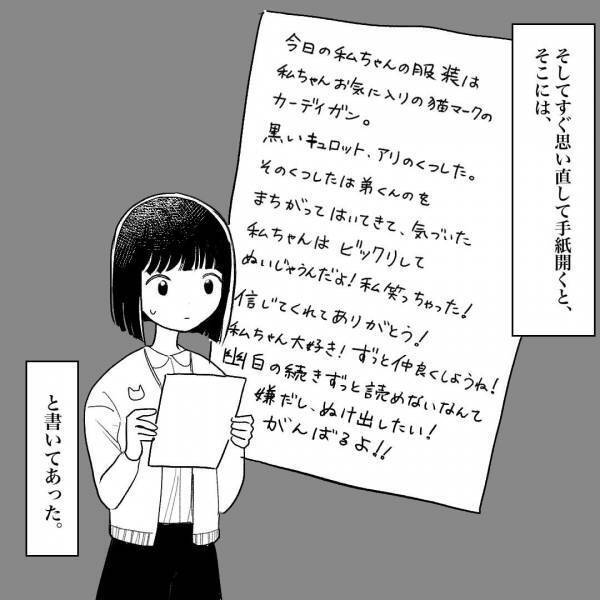 そしてすぐ思い直して手紙開くと、
そこには、
今日の私ちゃんの服装は
私ちゃんお気に入りの猫マークの
カーディガン。
黒いキュロット、アリのくつした。
そのくつしたは弟くんのを
まちがってはいてきて、気づいた
私ちゃんは ビックリして
ぬいじゃうんだよ！私笑っちゃった！
信じてくれてありがとう！
私ちゃん大好き！ずっと仲良くしようね！
幽白の続きずっと読めないなんて
嫌だし、ぬけ出したい！
がんばるよ！！
と書いてあった。